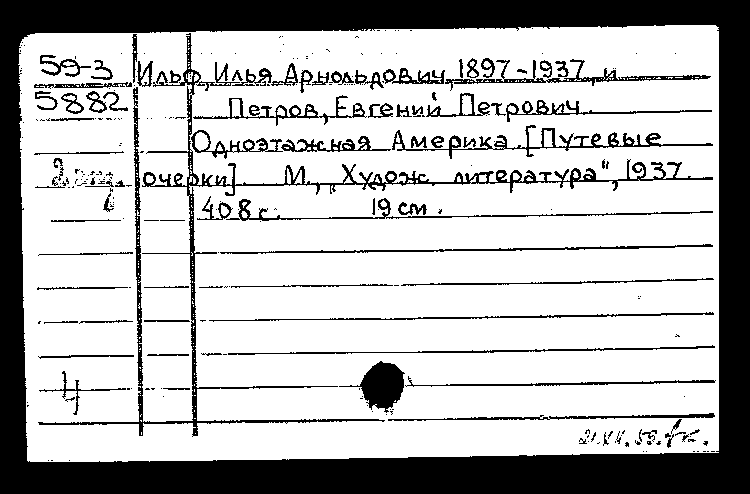 59-3 Ильф, Илья Арнольдович, 1897-1937, и
5882 Петров, Евгений Петрович.
Одноэтажная Америка. [Путевые
очерки]. М., „Худож. литература", 1937.
408 с. 19 см.
4